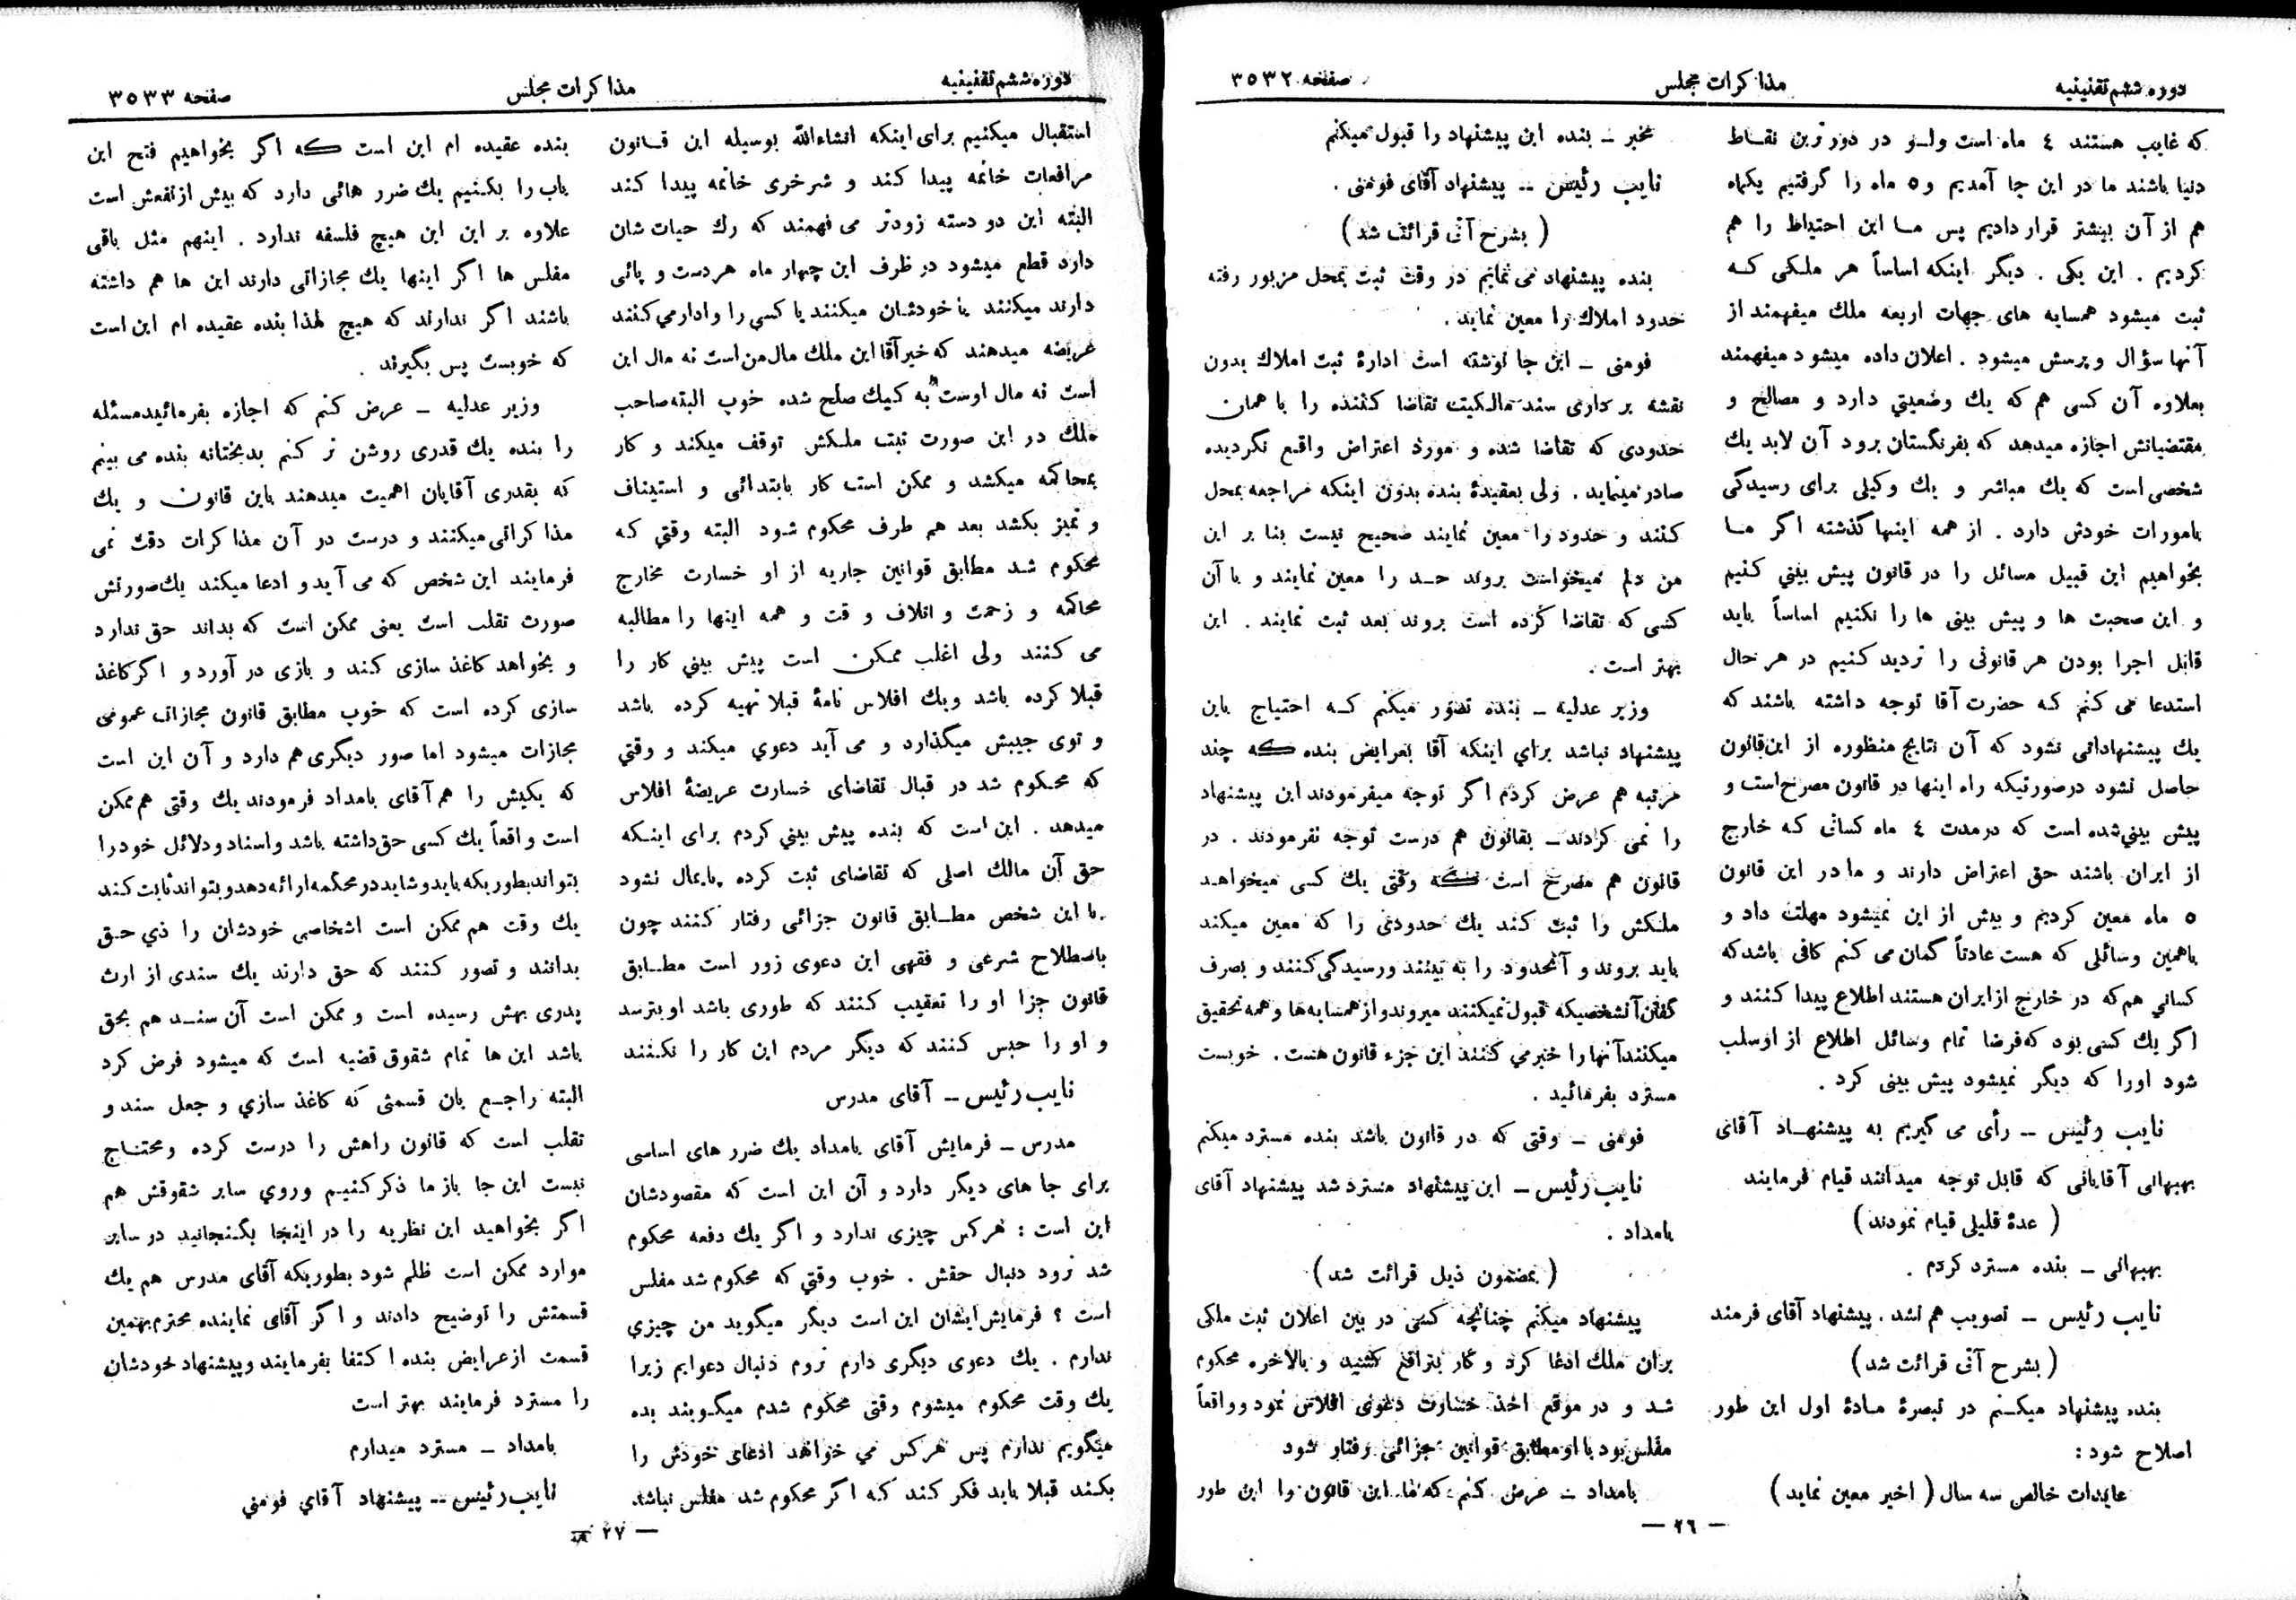 دوره ششم تقنینیه
مذاکرات مجلس
صفحه ۳۵۳۲
که غایب هستند ٤ ماه است ولـو در دورترین نقـاط
دنیا باشند ما در این جا آمدیم و ٥ ماه را گرفتیم یکماه
هم از آن بیشتر قرار دادیم پس مـا این احتیاط را هم
کردیم . این یکی . دیگر اینکه اساساً هر ملکی کـه
ثبت میشود همسایه های جهات اربعه ملك میفهمند از
آنها سؤال و پرسش میشود . اعلان داده میشود میفهمند
بعلاوه آن کسی هم که یك وضعیتي دارد و مصالح و
مقتضیاتش اجازه میدهد که بفرنگستان برود آن لابد یك
شخصی است که یك مباشر و یك وکیلی برای رسیدگی
بامورات خودش دارد . از همه اینها گذشته اگر مـا
بخواهیم این قبیل مسائل را در قانون پیش بیني کنیم
و این صحبت ها و پیش بینی ها را نکنیم اساساً باید
قابل اجرا بودن هر قانونی را تردید کنیم در هر حال
استدعا می کنم کـه حضرت آقا توجه داشته باشند که
یك پیشنهاداتی نشود که آن نتایج منظوره از این قانون
حاصل نشود درصورتیکه راه اینها در قانون مصرح است و
پیش بیني شده است که در مدت ٤ ماه کسانی کـه خارج
از ایران باشند حق اعتراض دارند و ما در این قانون
٥ ماه معین کردیم و بیش از این نمیشود مهلت داد و
باهمین وسائلی که هست عادتاً گمان می کنم کافی باشدکه
کساني هم که در خارج از ایران هستند اطلاع پیدا کنند و
اگر یك کسی بود که فرضا تمام وسائل اطلاع از او سلب
شود اورا که دیگر نمیشود پیش بینی کرد .
نایب رئیس ــ رأی می گیریم به پیشنهـاد آقای
بهبهانی آقایانی که قابل توجه میدانند قیام فرمایند
( عدهٔ قلیلی قیام نمودند )
بهبهانی ــ بنده مسترد کردم .
نایب رئیس ــ تصویب هم نشد . پیشنهاد آقای فرمند
( بشرح آتی قرائت شد )
بنده پیشنهاد میکـنم در تبصرهٔ مـادهٔ اول این طور
اصلاح شود :
عایدات خالص سه سال ( اخیر معین نماید )
مخبر ــ بنده این پیشنهاد را قبول میکنم
نایب رئیس ــ پیشنهاد آقای فومنی .
( بشرح آتی قرائت شد )
بنده پیشنهاد می نمایم در وقت ثبت بمحل مزبور رفته
حدود املاك را معین نماید .
فومنی ــ این جا نوشته است ادارهٔ ثبت املاك بدون
نقشه برداری سند مالکیت تقاضا کننده را با همان
حدودی که تقاضا شده و مورد اعتراض واقـع نگردیده
صادر مینماید . ولی بعقیدهٔ بنده بدون اینکه مراجعه بمحل
کنند و حدود را معین نمایند صحیح نیست بنا بر این
من دلم میخواست بروند حـد را معین نمایند و با آن
کسی که تقاضا کرده است بروند بعد ثبت نمایند . این
بهتر است .
وزیر عدلیه ــ بنده تصور میکنم کـه احتیاج باین
پیشنهاد نباشد براي اینکه آقا بعرایض بنده که چند
مرتبه هم عرض کردم اگر توجه میفرمودند این پیشنهاد
را نمی کردند ــ بقانون هم درست توجه نفرمودند . در
قانون هم مصرح است که وقتی یك کسی میخواهـد
ملکش را ثبت کند یك حدودی را که معین میکند
باید بروند و آنحدود را به بینند و رسیدگی کنند و بصرف
گفتن آنشخصیکه قبول نمیکنند میروند و از همسایه ها و همه تحقیق
میکنند آنها را خبر می کنند این جزء قانون هست . خوبست
مسترد بفرمائید .
فومنی ــ وقتی که در قانون باشد بنده مسترد میکنم
نایب رئیس ــ این پیشنهاد مسترد شد پیشنهاد آقای
بامداد .
( بمضمون ذیل قرائت شد )
پیشنهاد میکنم چنانچه کسی در بین اعلان ثبت ملکی
بران ملك ادعا کرد و کار بترافع کشید و بالاخره محکوم
شـد و در موقع اخذ خسارت دعوی افلاس نمود و واقعاً
مفلس بود با او مطابق قوانین جزائی رفتار شود
بامداد ــ عرض کنم که ما این قانون را این طور
ــ ٢٦ ــ
دوره ششم تقنینیه
مذاکرات مجلس
صفحه ۳۵۳۳
استقبال میکنیم برای اینکه انشاءالله بوسیله این قـانون
مرافعات خاتمه پیدا کند و شرخری خاتمه پیدا کند
البته این دو دسته زودتر می فهمند که رك حیات شان
دارد قطع میشود در ظرف این چهار ماه هر دست و پائی
دارند میکنند یا خودشان میکنند یا کسي را وادار می کنند
عریضه میدهند که خیر آقا این ملك مال من است نه مال این
است نه مال اوست به کیك صلح شده خوب البته صاحب
ملك در این صورت ثبت ملکش توقف میکند و کار
بمحاکمه میکشد و ممکن است کار بابتدائی و استیناف
و تمیز بکشد بعد هم طرف محکوم شود البته وقتي کـه
محکوم شد مطابق قوانین جاریه از او خسارت مخارج
محاکمه و زحمت و اتلاف و قت و همه اینها را مطالبه
می کنند ولی اغلب ممکن است پیش بیني کار را
قبلا کرده باشد ویك افلاس نامهٔ قبلا تهیه کرده باشد
و توی جیبش میگذارد و می آید دعوي میکند و وقتي
که محکوم شد در قبال تقاضای خسارت عریضهٔ افلاس
میدهد . این است که بنده پیش بیني کردم برای اینـکه
حق آن مالك اصلی که تقاضای ثبت کرده پایمال نشود
با این شخص مطـابق قانون جزائی رفتار کنند چون
باصطلاح شرعی و فقهی این دعوی زور است مطـابق
قانون جزا او را تعقیب کـنند که طوری باشد او بترسد
و او را حبس کـنند که دیگر مردم این کار را نکـنند
نایب رئیس ــ آقای مدرس
مدرس ــ فرمایش آقای بامداد یك ضرر های اساسی
برای جا های دیگر دارد و آن این است که مقصودشان
این است : هرکس چیزی ندارد و اگر یك دفعه محکوم
شد نرود دنبال حقش . خوب وقتي که محکوم شد مفلس
است ؟ فرمایش ایشان این است دیگر میگوید من چیزي
ندارم . یك دعوی دیگری دارم نروم دنبال دعوایم زیرا
یك وقت محکوم میشوم وقتی محکوم شدم میگـویند بده
میگویم ندارم پس هرکس می خواهد ادعای خودش را
بکند قبلا باید فکر کند کـه اگر محکوم شد مفلس نباشد
بنده عقیده ام این است که اگر بخواهیم فتح این
باب را بکـنیم یك ضرر هائی دارد که بیش از نفعش است
علاوه بر این این هیچ فلسفه ندارد . اینهم مثل باقی
مفلس ها اگر اینها یك مجازاتی دارند این ها هم داشته
باشند اگر ندارند که هیچ لهذا بنده عقیده ام این است
که خوبست پس بگیرند .
وزیر عدلیه ــ عرض کنم که اجازه بفرمائیدمسئله
را بنده یك قدری روشن تر کنم بدبختانه بنده می بینم
که بقدری آقایان اهمیت میدهند باین قانون و یك
مذاکراتی میکنند و درست در آن مذاکرات دقت نمی
فرمایند این شخص که می آید و ادعا میکند یك صورتش
صورت تقلب است یعنی ممکن است که بداند حق ندارد
و بخواهد کاغذ سازی کند و بازی در آورد و اگر کاغذ
سازی کرده است که خوب مطابق قانون مجازات عمومی
مجازات میشود اما صور دیگری هم دارد و آن این است
که یکیش را هم آقای بامداد فرمودند یك وقتی هم ممکن
است واقعاً یك کسی حق داشته باشد و اسناد و دلائل خود را
بتواند بطوریکه باید و شاید در محکمه ارائه دهد و بتواند ثابت کند
یك وقت هم ممکن است اشخاصی خودشان را ذي حـق
بدانند و تصور کـنند که حق دارند یك سندی از ارث
پدری بهش رسیده است و ممکن است آن سنـد هم بحق
باشد این ها تمام شقوق قضیه است که میشود فرض کرد
البته راجـع بان قسمتی که کاغذ سازي و جعل سند و
تقلب است که قانون راهش را درست کرده ومحتـاج
نیست این جا باز ما ذکر کنیم وروي سایر شقوقش هم
اگر بخواهید این نظریه را در اینجا بگـنجانید در سایر
موارد ممکن است ظلم شود بطوریکه آقای مدرس هم یك
قسمتش را توضیح دادند و اگر آقای نماینده محترم بهمین
قسمت از عرایض بنده اکتفا بفرمایند و پیشنهاد خودشان
را مسترد فرمایند بهتر است
بامداد ــ مسترد میدارم
نایب رئیس ــ پیشنهاد آقاي فومني
ــ ٢٧ ــ